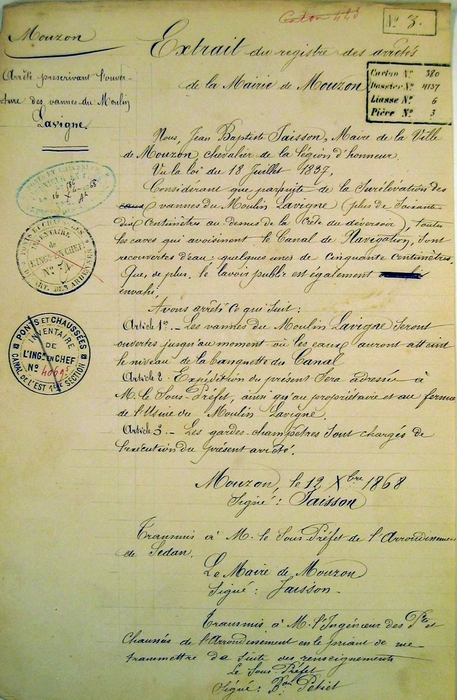 N° 3.
Mouzon
Extrait du registre des arrêtés
de la Mairie de Mouzon
Arrêté prescrivant l'ouver-
ture des vannes du Moulin
Lavigne.
Carton N° 380
Dossier N° 4137
Liasse N° 6
Pièce N° 3
Nous, Jean Baptiste Jaisson, Maire de la Ville
de Mouzon chevalier de la Légion d'honneur.
Vu la loi du 18 juillet 1837.
Considérant que par suite de la Surélévation des
vannes du Moulin Lavigne (plus de Soixante-
dix Centimètres au dessus de la Crête du déversoir), toutes
les caves qui avoisinent le Canal de Navigation, sont
recouvertes d'eau; quelques unes de Cinquante Centimètres.
Que, de plus, le lavoir public est également
envahi.
Avons arrêté Ce qui Suit:
Article 1er. - Les vannes du Moulin Lavigne seront
ouvertes jusqu'au moment où les eaux auront atteint
le niveau de la banquette du Canal
Article 2. Expédition du présent Sera adressée à
M. le Sous-Préfet, ainsi qu'au propriétaire et au fermier
de l'Usine du Moulin Lavigne.
Article 3 - Les gardes-champêtres sont chargés de
l'exécution du présent arrêté.
Mouzon, le 12 Xbre 1868
Signé: Jaisson
Transmis à M. le Sous Préfet de l'Arrondissement
de Sedan.
Le Maire de Mouzon
Signé: Jaisson.
Transmis à M. l'Ingénieur des Pts et
Chaussées de l'Arrondissement en le priant de me
transmettre da Suite des renseignements
Le Sous Préfet
Signé: Bon Petiet
PONTS ET CHAUSSÉES
INVENTAIRE
DE
L'INGR EN CHEF
N°
CANAL DE L'EST 1RE SECTION